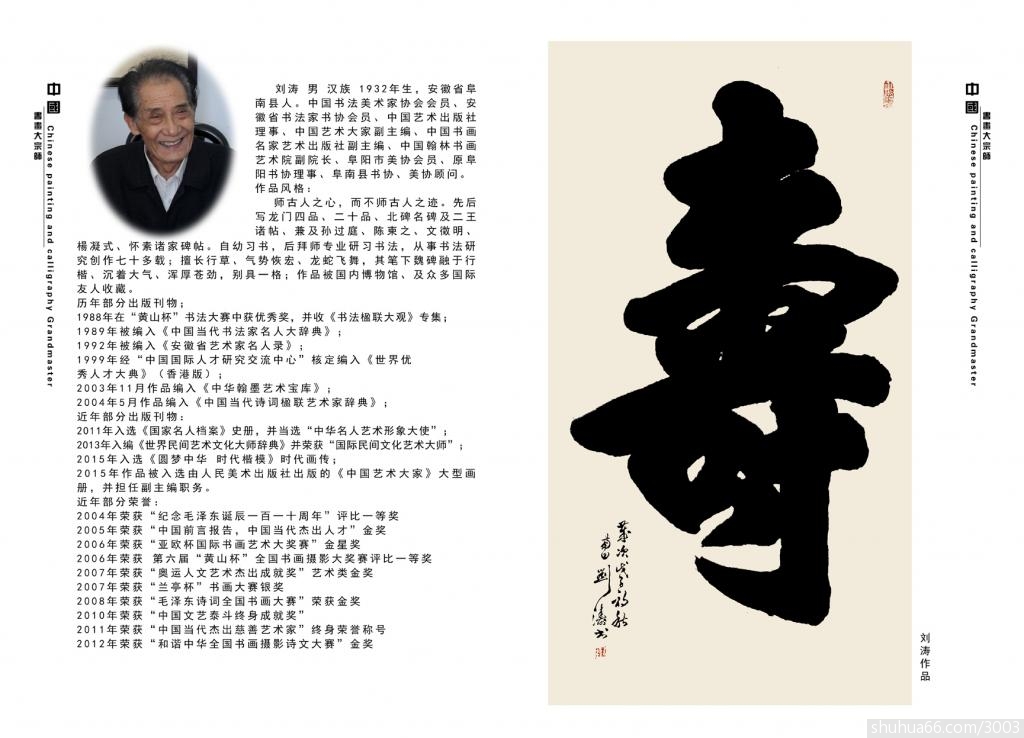 中國
書畫大宗師
Chinese painting and calligraphy Grandmaster
刘涛 男 汉族 1932年生，安徽省阜
南县人。中国书法美术家协会会员、安
徽省书法家书协会员、中国艺术出版社
理事、中国艺术大家副主编、中国书画
名家艺术出版社副主编、中国翰林书画
艺术院副院长、阜阳市美协会员、原阜
阳书协理事、阜南县书协、美协顾问。
作品风格：
师古人之心，而不师古人之迹。先后
写龙门四品、二十品、北碑名碑及二王
诸帖、兼及孙过庭、陈柬之、文徵明、
楊凝式、怀素诸家碑帖。自幼习书，后拜师专业研习书法，从事书法研
究创作七十多载；擅长行草、气势恢宏、龙蛇飞舞，其笔下魏碑融于行
楷、沉着大气、浑厚苍劲，别具一格；作品被国内博物馆、及众多国际
友人收藏。
历年部分出版刊物；
1988年在“黄山杯”书法大赛中获优秀奖，并收《书法楹联大观》专集；
1989年被编入《中国当代书法家名人大辞典》；
1992年被编入《安徽省艺术家名人录》；
1999年经“中国国际人才研究交流中心”核定编入《世界优
秀人才大典》（香港版）；
2003年11月作品编入《中华翰墨艺术宝库》；
2004年5月作品编入《中国当代诗词楹联艺术家辞典》；
近年部分出版刊物：
2011年入选《国家名人档案》史册，并当选“中华名人艺术形象大使”；
2013年入编《世界民间艺术文化大师辞典》并荣获“国际民间文化艺术大师”；
2015年入选《圆梦中华 时代楷模》时代画传；
2015年作品被入选由人民美术出版社出版的《中国艺术大家》大型画
册，并担任副主编职务。
近年部分荣誉：
2004年荣获“纪念毛泽东诞辰一百一十周年”评比一等奖
2005年荣获“中国前言报告，中国当代杰出人才”金奖
2006年荣获“亚欧杯国际书画艺术大奖赛”金星奖
2006年荣获 第六届“黄山杯”全国书画摄影大奖赛评比一等奖
2007年荣获“奥运人文艺术杰出成就奖”艺术类金奖
2007年荣获“兰亭杯”书画大赛银奖
2008年荣获“毛泽东诗词全国书画大赛”荣获金奖
2010年荣获“中国文艺泰斗终身成就奖”
2011年荣获“中国当代杰出慈善艺术家”终身荣誉称号
2012年荣获“和谐中华全国书画摄影诗文大赛”金奖
壽
歲次戊子初秋
南田劉濤书
刘涛作品
中國
書畫大宗師
Chinese painting and calligraphy Grandmaster
shuhua66.com/3003